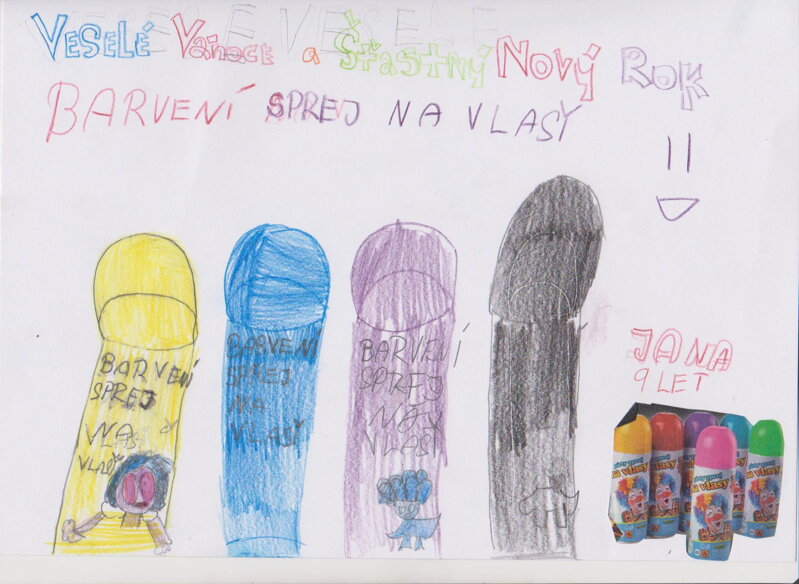 VESELÉ VÁNOCE a ŠŤASTNÝ NOVÝ ROK
BARVENÍ SPREJ NA VLASY
BARVENÍ
SPREJ
NA
VLASY
BARVENÍ
SPREJ
NA
VLASY
BARVENÍ
SPREJ
NA
VLASY
JANA
9 LET
na vlasy